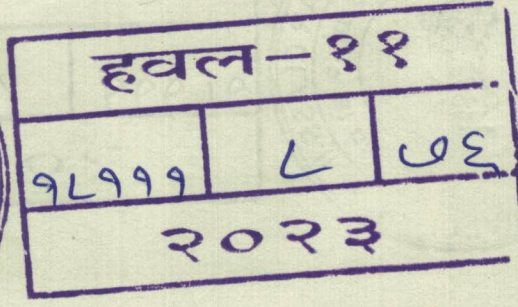 हवल - ११
१८१११ ८ ७६
२०२३